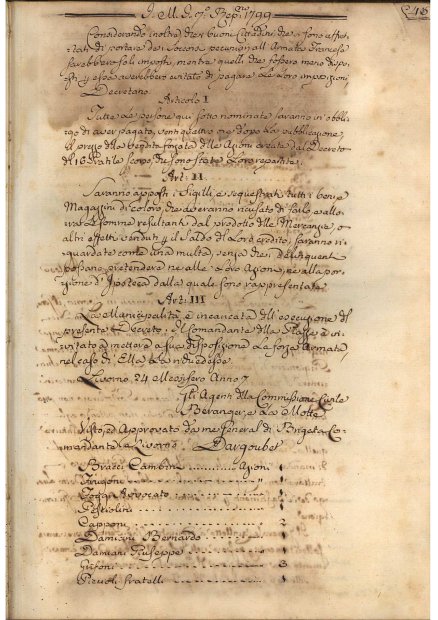 I. M. G. 1799
Considerando inoltre che i buoni Cittadini che si sono affret-
tati di portare de' Soccorsi pecuniarj all'Armata Francese
sarebbero soli imposti, mentre quelli che fossero meno dispo-
sti essa averebbero evitato di pagare le loro imposizioni
Decretano
Articolo I
Tutte le persone qui sotto nominate saranno in obbli-
go di aver pagato, ventiquattro ore dopo la pubblicazione
il prezzo della vendita forzata delle Azioni creata dal Decreto
de' 16 Pratile scorso, che sono state loro repartite.
Art: II
Saranno apposti i Sigilli, e sequestrati tutti i beni, e
Magazzini di coloro, che averanno ricusato di farlo, e allo-
ra le somme resultanti dal prodotto delle Mercanzie, o
altri effetti venduti il saldo di loro credito, saranno ri-
guardate come una multa, senza che i Delinquenti
possano pretendere ne alle loro Azioni, ne alla por-
zione d'Ipoteca dalla quale sono rappresentate.
Art: III
La Municipalità è incaricata dell'esecuzione del
presente Decreto: Il Comandante della Piazza è in-
vitato a mettere a sua disposizione la forza Armata
nel caso ch'Ella la richiedesse.
Livorno 24 Messifero Anno 7
Gli Agenti della Commissione Civile
Beranger, e La Motte
Visto, ed Approvato da me General di Brigata Co-
mandante a Livorno. Dargoubet
Bracci Cambini Azioni 1
Frugoni " 1
Avvocato 1
Pestiolini 1
Capponi 2
Damiani Bernardo 1
Damiani Giuseppe 1
Grifoni 3
Pievoli fratelli 1